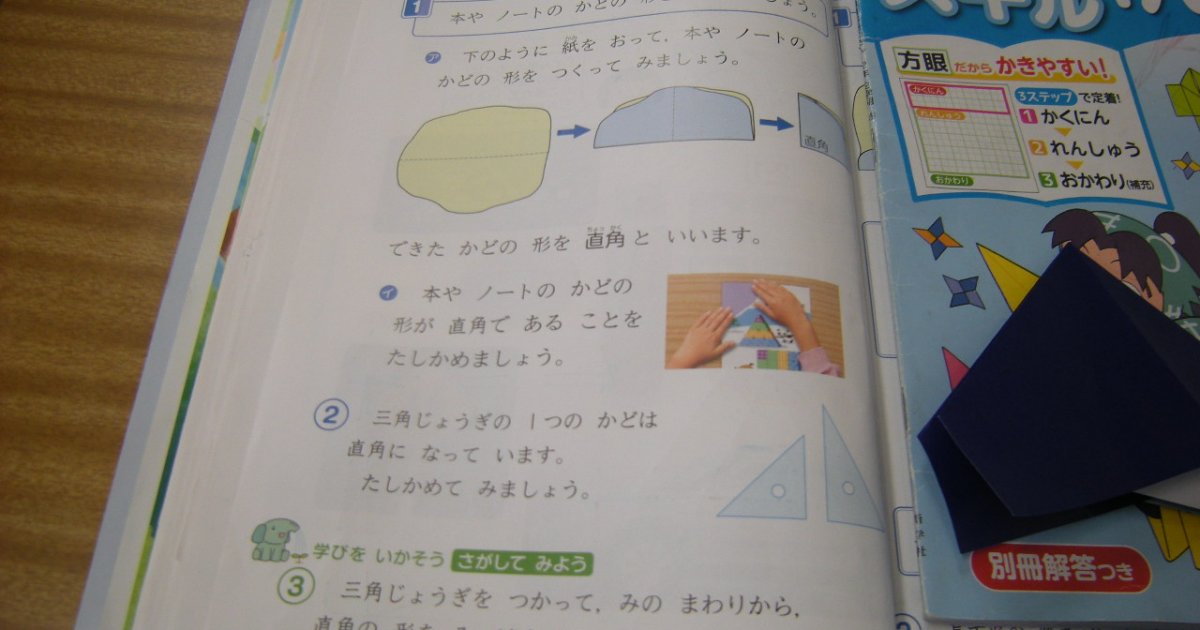 1
本や ノートの かどの
㋐ 下のように 紙を おって，本や ノートの
かどの 形を つくって みましょう。
直角
できた かどの 形を 直角と いいます。
㋑ 本や ノートの かどの
形が 直角で ある ことを
たしかめましょう。
② 三角じょうぎの 1つの かどは
直角に なって います。
たしかめて みましょう。
学びを いかそう さがして みよう
③ 三角じょうぎを つかって，みの まわりから，
直角の 形を
スキル
方眼だから かきやすい!
かくにん
れんしゅう
おかわり
3ステップで定着!
1 かくにん
2 れんしゅう
3 おかわり(補充)
別冊解答つき